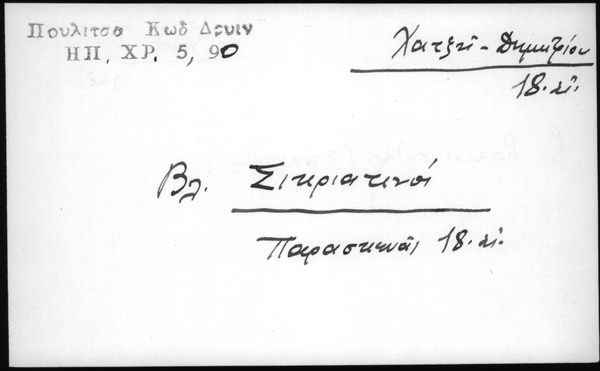 Πουλιτσα Κωδ Δρυιν
ΗΠ. ΧΡ. 5, 90
Χατζῆ-Δημητρίου
18. αἰ.
Βλ. Σιτριατινοί
Παρασκευᾶς 18. αἰ.